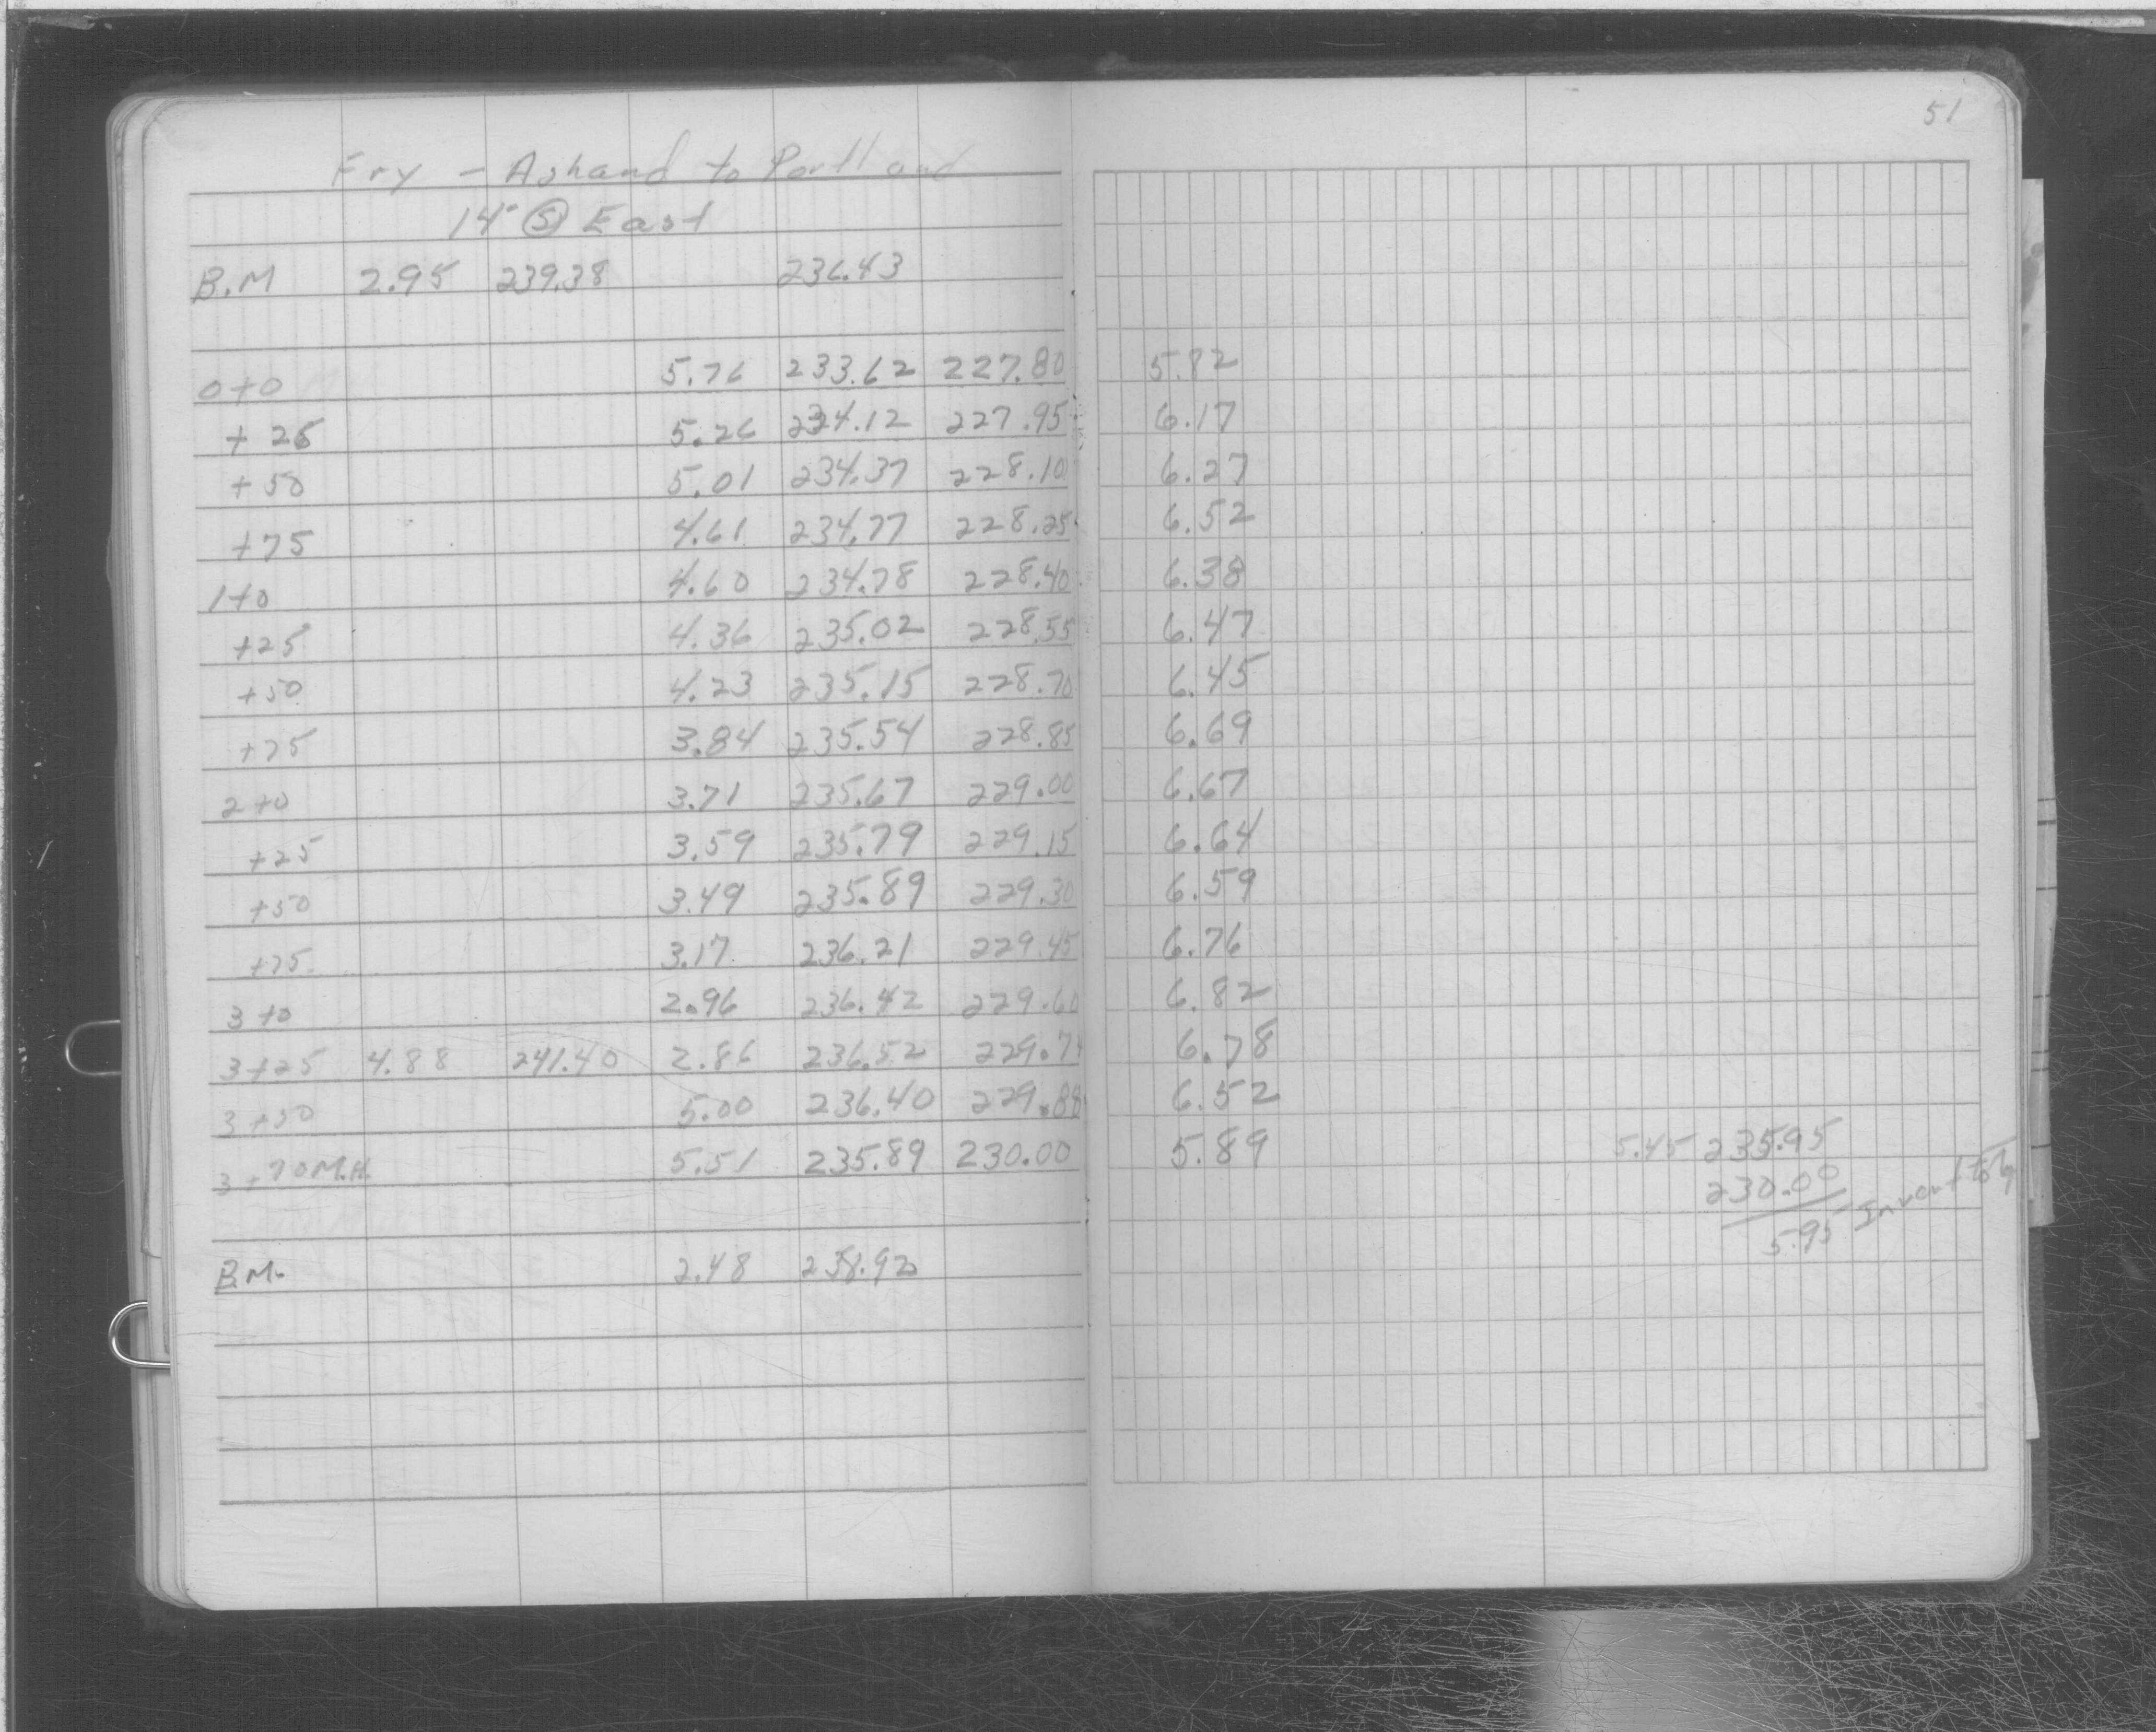 51
Fry - Ashand to Portland
14" Ⓢ East
B.M 2.95 239.38 236.43
0+0 5.76 233.62 227.80 5.82
+25 5.26 234.12 227.95 6.17
+50 5.01 234.37 228.10 6.27
+75 4.61 234.77 228.25 6.52
1+0 4.60 234.78 228.40 6.38
+25 4.36 235.02 228.55 6.47
+50 4.23 235.15 228.70 6.45
+75 3.84 235.54 228.85 6.69
2+0 3.71 235.67 229.00 6.67
+25 3.59 235.79 229.15 6.64
+50 3.49 235.89 229.30 6.59
+75 3.17 236.21 229.45 6.76
3+0 2.96 236.42 229.60 6.82
3+25 4.88 241.40 2.86 236.52 229.74 6.78
3+50 5.00 236.40 229.88 6.52
3+70 M.H. 5.51 235.89 230.00 5.89 5.45 235.95
230.00
5.95 Invert to
B.M. 2.48 238.92